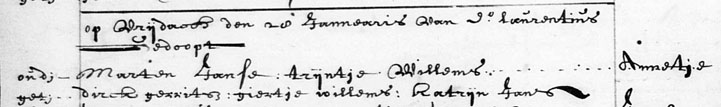 op Vrijdach den 28 Januaris van Do Laurentius
Gedoopt
oudj - Marten Janse : trijntje Willems . . . . . . Annetje
getj - dirck gerritsz : giertje willems : Katrijn Jans